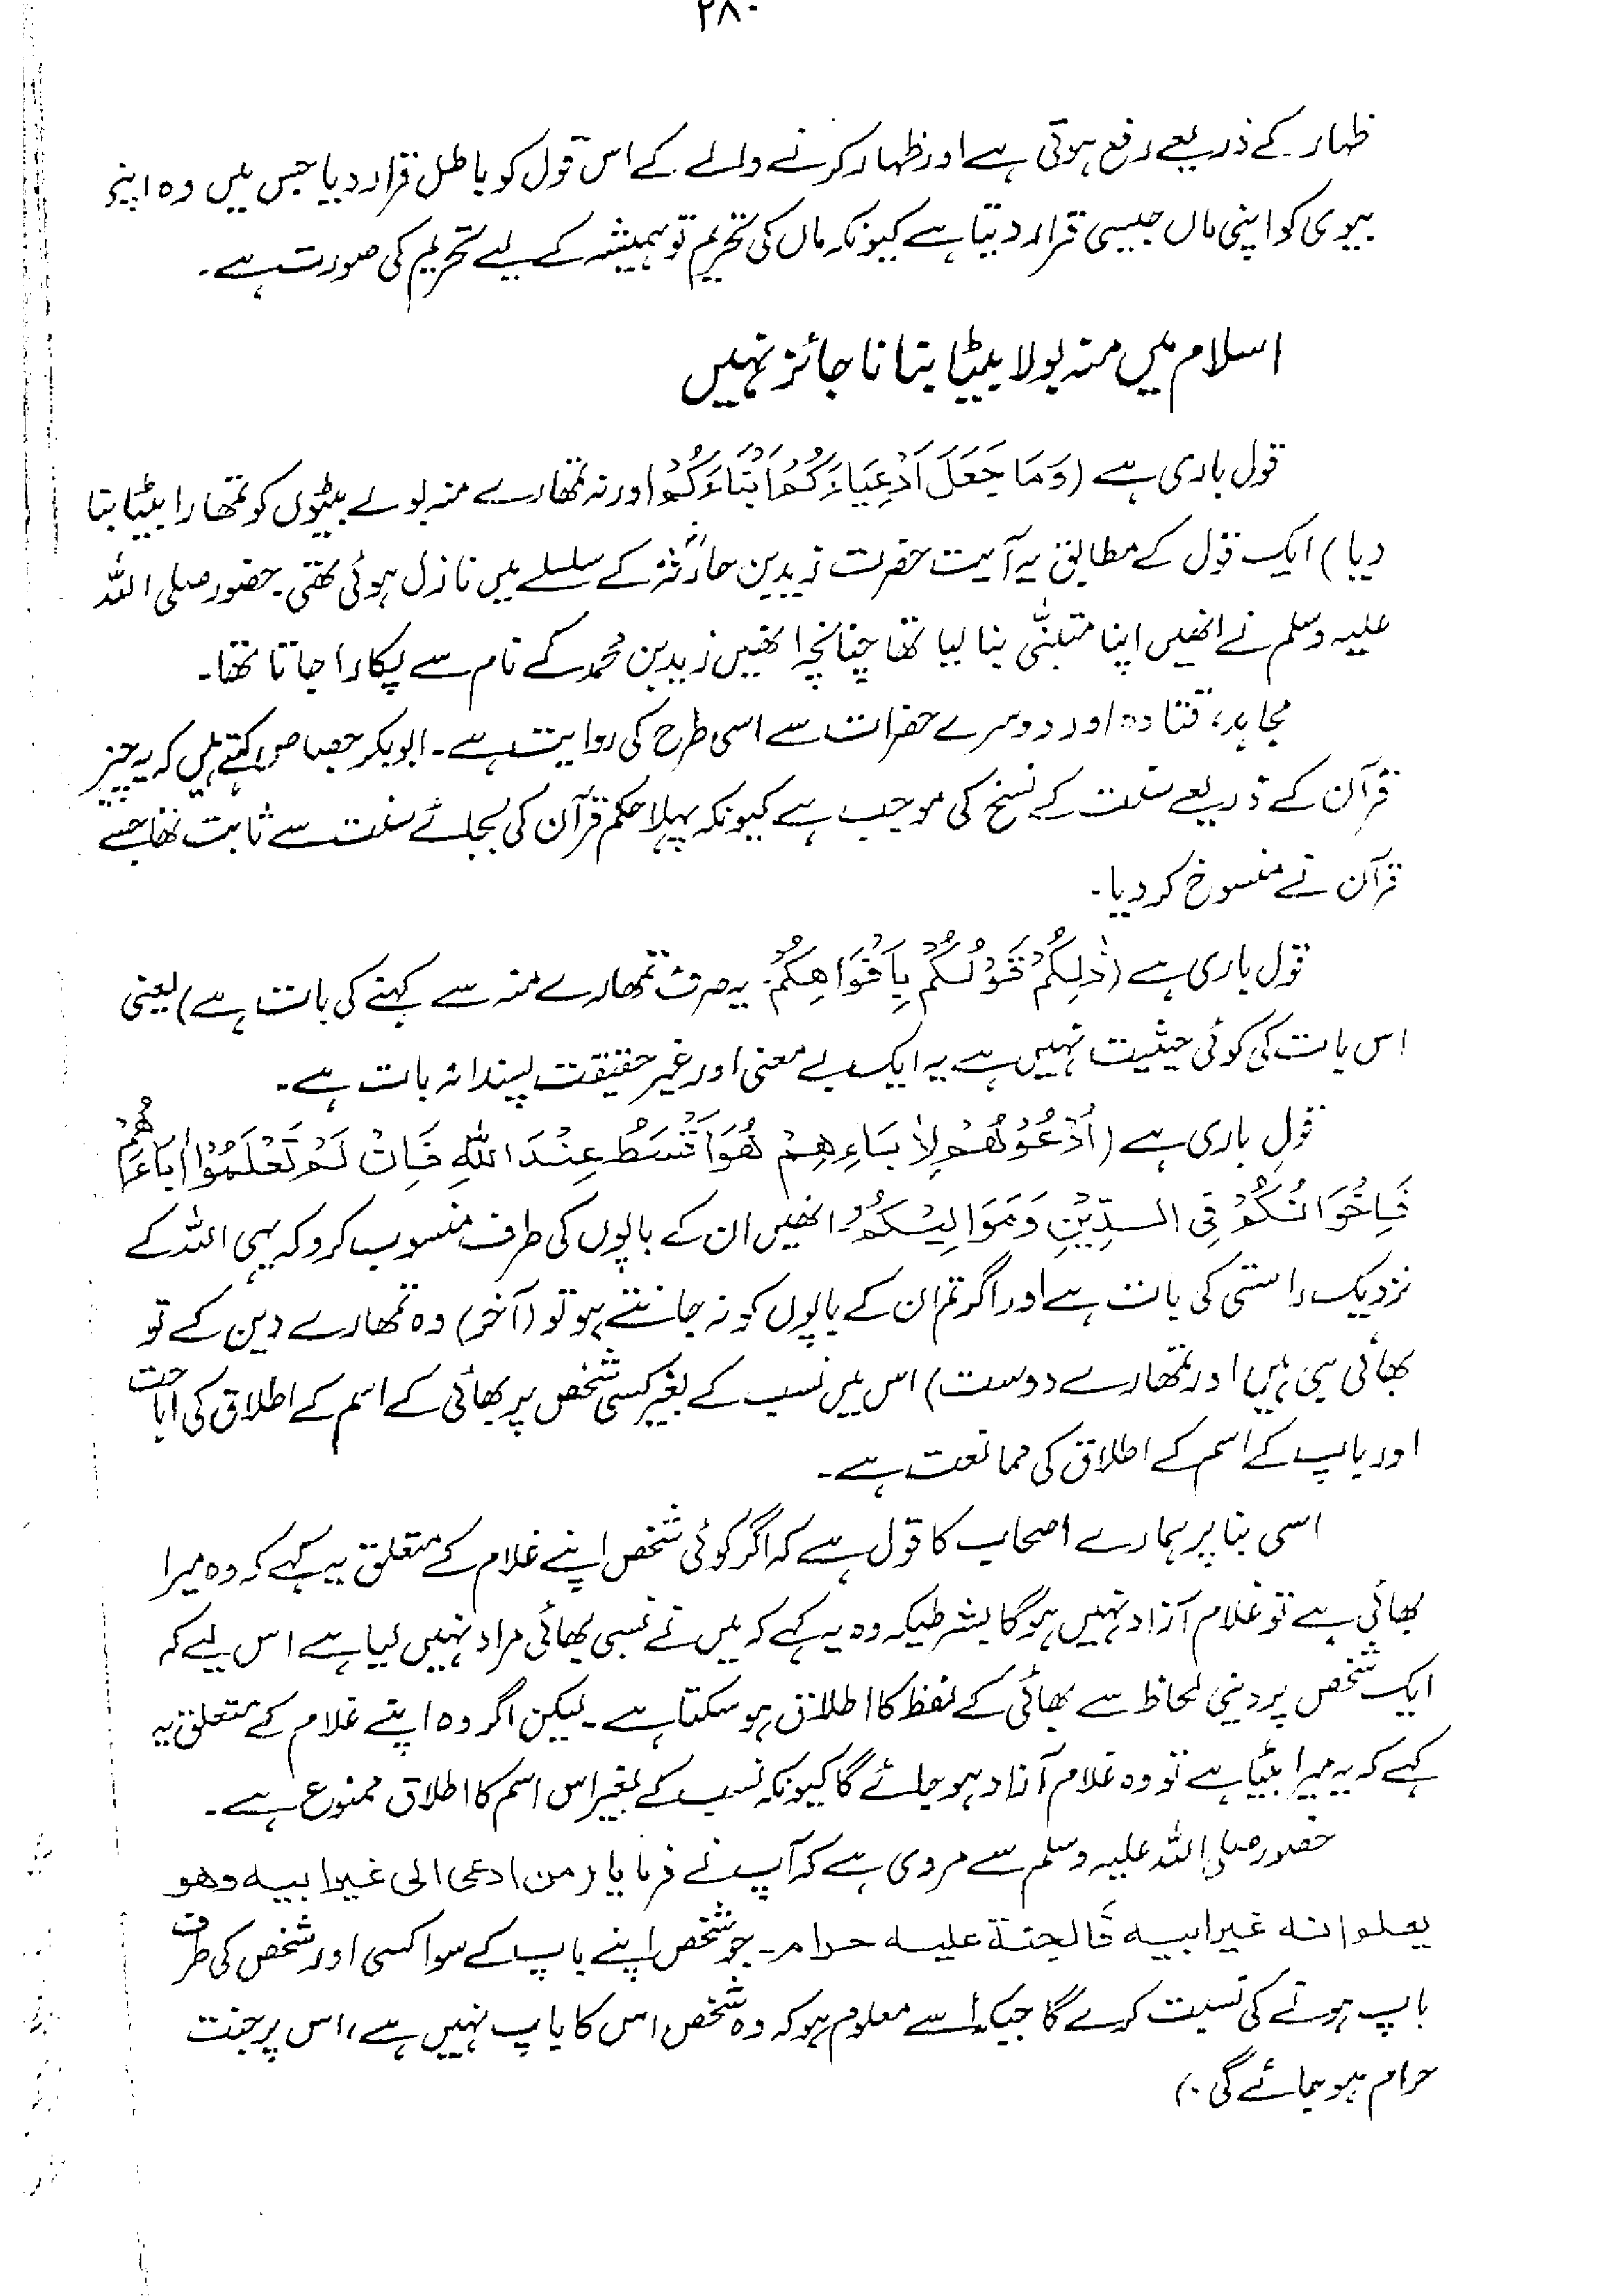 ۲۸۰
ظہار کے ذریعے رفع ہوتی ہے اور ظہار کرنے والے کے اس قول کو باطل قرار دیا جس میں وہ اپنی
بیوی کو اپنی ماں جیسی قرار دیتا ہے کیونکہ ماں کی تحریم تو ہمیشہ کے لیے تحریم کی صورت ہے۔
اسلام میں منہ بولا بیٹا بنانا جائز نہیں
قول باری ہے (وَمَا جَعَلَ اَدْعِيَاءَكُمْ اَبْنَاءَكُمْ اور نہ تمھارے منہ بولے بیٹوں کو تمھارا بیٹا بنا
دیا) ایک قول کے مطابق یہ آیت حضرت زید بن حارثہؓ کے سلسلے میں نازل ہوئی تھی۔ حضور صلی اللہ
علیہ وسلم نے انھیں اپنا متبنّٰی بنا لیا تھا چنانچہ انھیں زید بن محمد کے نام سے پکارا جاتا تھا۔
مجاہد، قتادہ اور دوسرے حضرات سے اسی طرح کی روایت ہے۔ ابوبکر جصاص کہتے ہیں کہ یہ چیز
قرآن کے ذریعے سنت کے نسخ کی موجب ہے کیونکہ پہلا حکم قرآن کی بجائے سنت سے ثابت تھا جسے
قرآن نے منسوخ کر دیا۔
قول باری ہے (ذٰلِكُمْ قَوْلُكُمْ بِاَفْوَاهِكُمْ۔ یہ صرف تمھارے منہ سے کہنے کی بات ہے) یعنی
اس بات کی کوئی حیثیت نہیں ہے یہ ایک بے معنی اور غیر حقیقت پسندانہ بات ہے۔
قولِ باری ہے (اُدْعُوْهُمْ لِاٰبَاءِهِمْ هُوَ اَقْسَطُ عِنْدَ اللهِ فَاِنْ لَمْ تَعْلَمُوْا اٰبَاءَهُمْ
فَاِخْوَانُكُمْ فِى الدِّيْنِ وَمَوَالِيْكُمْ انھیں ان کے باپوں کی طرف منسوب کرو کہ یہی اللہ کے
نزدیک راستی کی بات ہے اور اگر تم ان کے باپوں کو نہ جانتے ہو تو (آخر) وہ تمھارے دین کے تو
بھائی ہی ہیں اور تمھارے دوست) اس میں نسب کے بغیر کسی شخص پر بھائی کے اسم کے اطلاق کی اباحت
اور باپ کے اسم کے اطلاق کی ممانعت ہے۔
اسی بنا پر ہمارے اصحاب کا قول ہے کہ اگر کوئی شخص اپنے غلام کے متعلق یہ کہے کہ وہ میرا
بھائی ہے تو غلام آزاد نہیں ہو گا بشرطیکہ وہ یہ کہے کہ میں نے نسبی بھائی مراد نہیں لیا ہے اس لیے کہ
ایک شخص پر دینی لحاظ سے بھائی کے لفظ کا اطلاق ہو سکتا ہے۔ لیکن اگر وہ اپنے غلام کے متعلق یہ
کہے کہ یہ میرا بیٹا ہے تو وہ غلام آزاد ہو جائے گا کیونکہ نسب کے بغیر اس اسم کا اطلاق ممنوع ہے۔
حضور صلی اللہ علیہ وسلم سے مروی ہے کہ آپ نے فرمایا (من ادعى الى غير ابيه وهو
يعلم انه غير ابيه فالجنة عليه حرام۔ جو شخص اپنے باپ کے سوا کسی اور شخص کی طرف
باپ ہونے کی نسبت کرے گا جبکہ اسے معلوم ہو کہ وہ شخص اس کا باپ نہیں ہے، اس پر جنت
حرام ہو جائے گی۔)